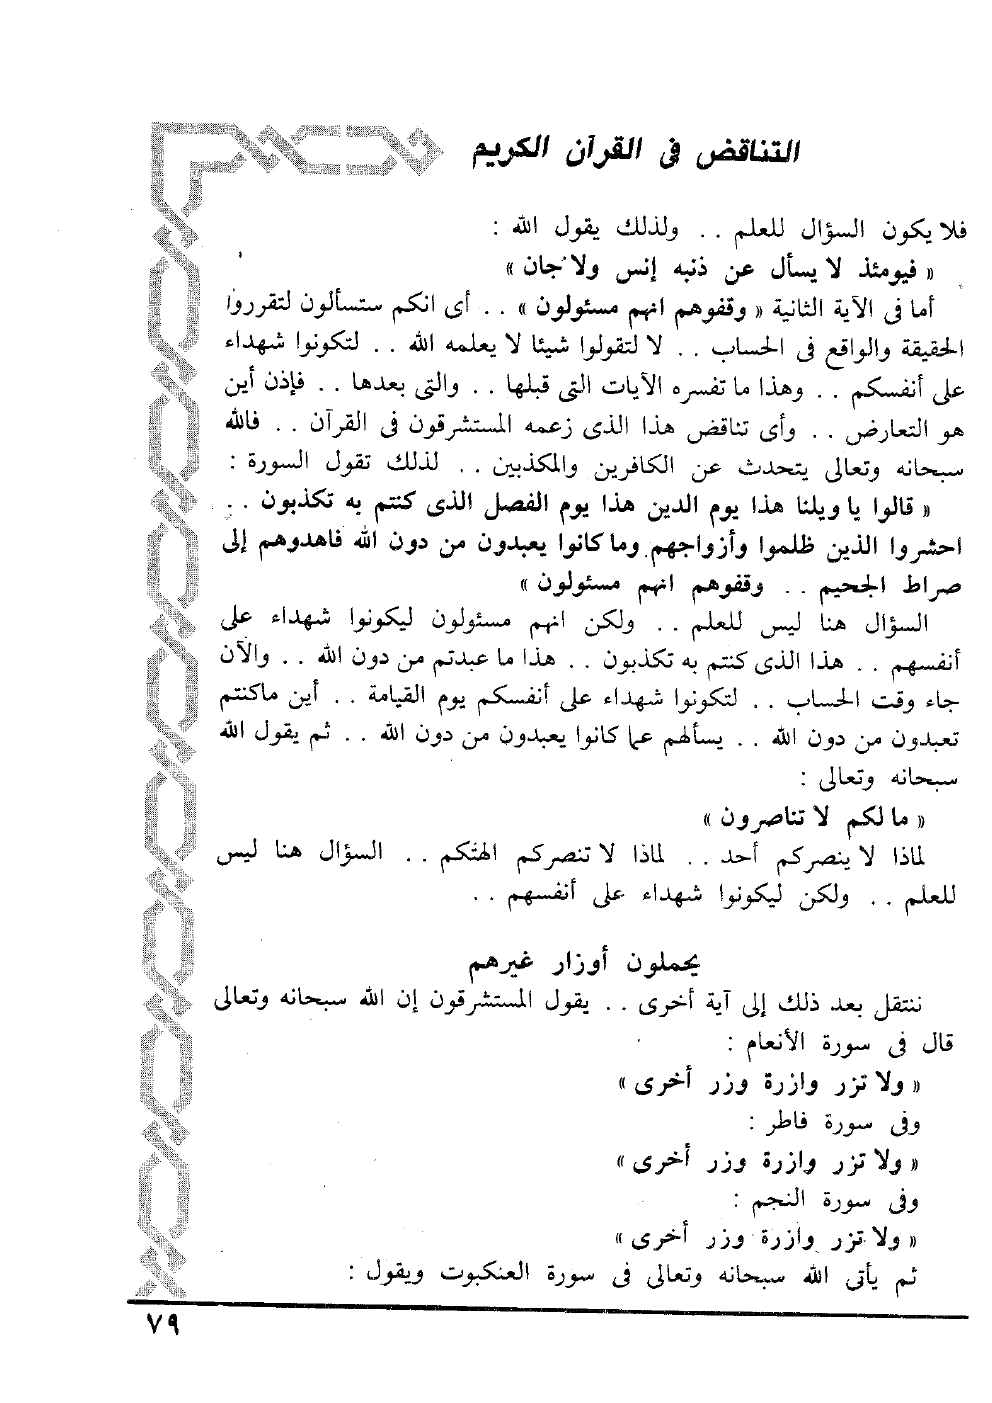 التناقض فى القرآن الكريم
فلا يكون السؤال للعلم .. ولذلك يقول الله :
« فيومئذ لا يسأل عن ذنبه إنس ولا جان »
أما فى الآية الثانية « وقفوهم انهم مسئولون » .. أى انكم ستسألون لتقرروا
الحقيقة والواقع فى الحساب .. لا لتقولوا شيئا لا يعلمه الله .. لتكونوا شهداء
على أنفسكم .. وهذا ما تفسره الآيات التى قبلها .. والتى بعدها .. فإذن أين
هو التعارض .. وأى تناقض هذا الذى زعمه المستشرقون فى القرآن .. فالله
سبحانه وتعالى يتحدث عن الكافرين والمكذبين .. لذلك تقول السورة :
« قالوا يا ويلنا هذا يوم الدين هذا يوم الفصل الذى كنتم به تكذبون ..
احشروا الذين ظلموا وأزواجهم وما كانوا يعبدون من دون الله فاهدوهم إلى
صراط الجحيم .. وقفوهم انهم مسئولون »
السؤال هنا ليس للعلم .. ولكن انهم مسئولون ليكونوا شهداء على
أنفسهم .. هذا الذى كنتم به تكذبون .. هذا ما عبدتم من دون الله .. والآن
جاء وقت الحساب .. لتكونوا شهداء على أنفسكم يوم القيامة .. أين ماكنتم
تعبدون من دون الله .. يسألهم عما كانوا يعبدون من دون الله .. ثم يقول الله
سبحانه وتعالى :
« ما لكم لا تناصرون »
لماذا لا ينصركم أحد .. لماذا لا تنصركم الهتكم .. السؤال هنا ليس
للعلم .. ولكن ليكونوا شهداء على أنفسهم ..
يحملون أوزار غيرهم
ننتقل بعد ذلك إلى آية أخرى .. يقول المستشرقون إن الله سبحانه وتعالى
قال فى سورة الأنعام :
« ولا تزر وازرة وزر أخرى »
وفى سورة فاطر :
« ولا تزر وازرة وزر أخرى »
وفى سورة النجم :
« ولا تزر وازرة وزر أخرى »
ثم يأتى الله سبحانه وتعالى فى سورة العنكبوت ويقول :
٧٩